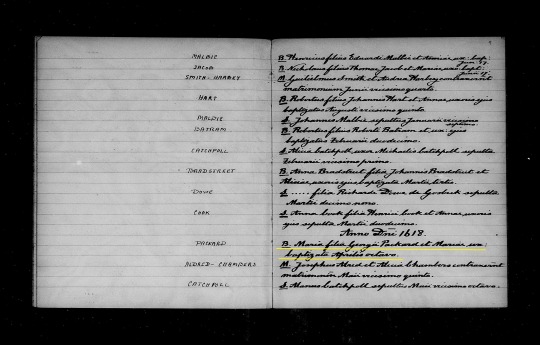 MALBIE
JACOB
SMITH - HARBEY
HART
MALBIE
BATRAM
CATCHPOLL
BRADSTREET
DOWE
COOK
PACKARD
ALDRED - CHAMBERS
CATCHPOLL
B. Henricus filius Edwardi Malbie et
B. Nicholaus filius Thomas Jacob et Mariae
M. Gulielmus Smith et Andrea Harbey contraxerunt
matrimonium Junii vicissimo quarto.
B. Robertus filius Johannis Hart et Annae, uxoris ejus
baptizatus Augusti vicissimo quinto.
S. Johannis Malbie sepultus Januarii vicissimo
B. Robertus filius Roberti Batram et ux: ejus
baptizatus Februarii duodecimo.
S. Alicia Catchpoll, uxor Michaelis Catchpoll sepulta
Februarii vicissimo primo.
B. Anna Bradstreet filia Johannis Bradstreet et
Aliciae, uxoris ejus baptizata Martii tertio.
S. ..... filia Richardi Dowe de sepulta
Martii decimo nono.
S. Anna Cook filia Henrici Cook et Annae, uxoris
ejus sepulta Martii duodecimo.
Anno Dni 1618.
B. Maria filia Georgii Packard et Mariae ux:
baptizata Aprilis octavo.
M. Josephus Alred et Alicia Chambers contraxerunt
matrimonium Maii vicissimo quinto.
S. Catchpoll sepultus Maii vicissimo octavo.